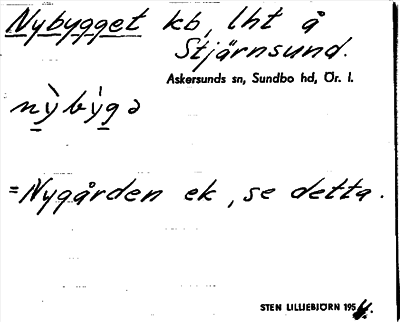 Nybygget kb, lht å
Stjärnsund.
Askersunds sn, Sundbo hd, Ör. l.
nỳbỳgə
=Nygården ek, se detta.
STEN LILLIEBJÖRN 195